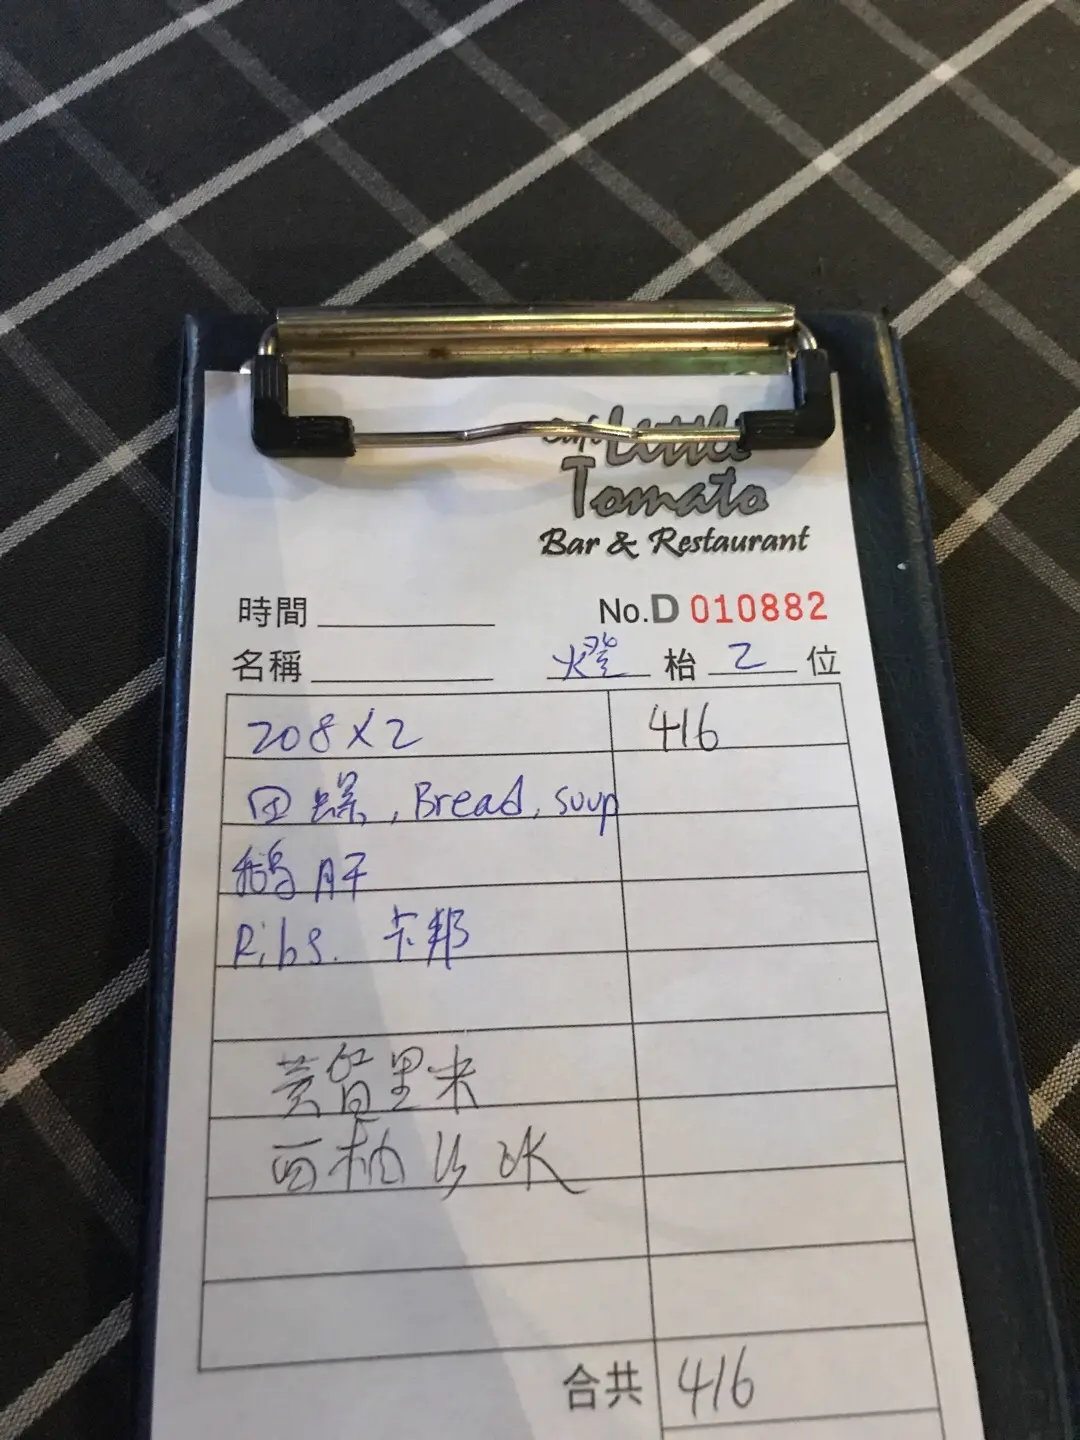 Café Little
Tomato
Bar & Restaurant
時間 No.D 010882
名稱 火燈 枱 2 位
208 X 2 416
田螺, Bread, Soup
鵝肝
Ribs. 卡邦
黃薑里米
西柚沙冰
合共 416